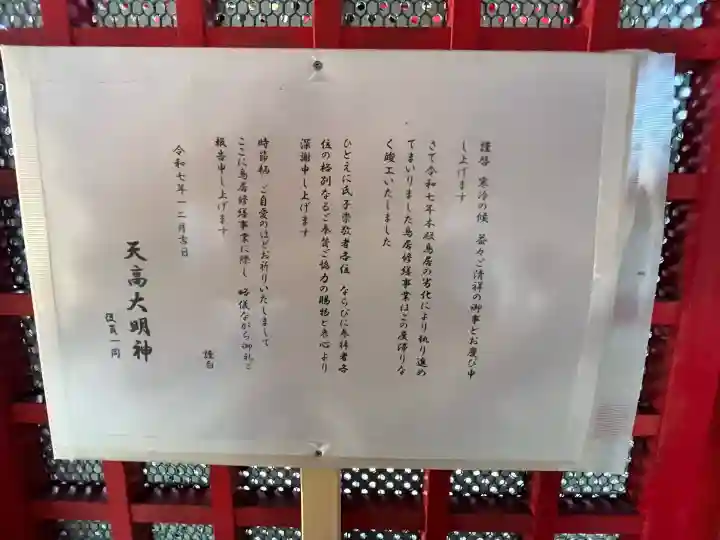 謹啓 寒冷の候 益々ご清祥の御事とお慶び申
し上げます
さて令和七年本殿鳥居の劣化により執り進め
てまいりました鳥居修繕事業はこの度滞りな
く竣工いたしました
ひとえに氏子崇敬者各位 ならびに参拝者各
位の格別なるご奉賛ご協力の賜物と衷心より
深謝申し上げます
時節柄 ご自愛のほどお祈りいたしまして
ここに鳥居修繕事業に際し 略儀ながら御礼ご
報告申し上げます
謹白
令和七年一二月吉日
天高大明神
役員一同